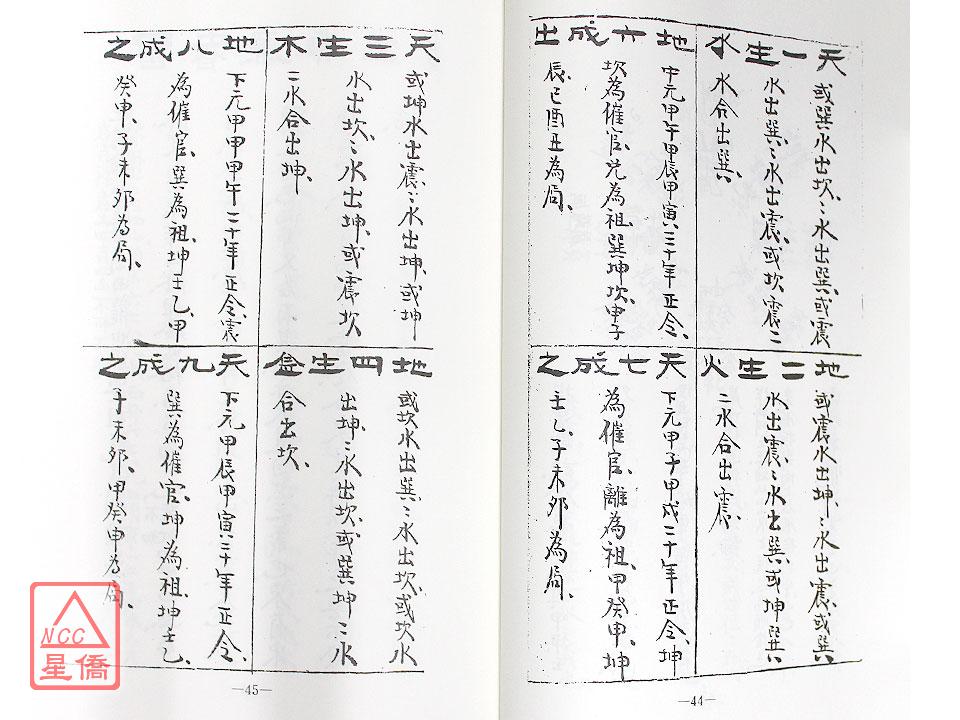 天一生水
或巽水出坎、坎水出巽、或震
水出巽、巽水出震、或坎震二
水合出巽、
地六成出
中元甲午甲辰甲寅三十年正令、
坎為催官、兌為祖、巽坤坎、申子
辰、巳酉丑為局、
地二生火
或震水出坤、坤水出震、或巽
水出震、震水出巽、或坤巽
二水合出震、
天七成之
下元甲子甲戌二十年正令、坤
為催官、離為祖、甲癸申、坤
壬乙、子未卯為局、
—44—
天三生木
或坤水出震、震水出坤、或坤
水出坎、坎水出坤、或震坎
二水合出坤、
地八成之
下元甲申甲午二十年正令、震
為催官、巽為祖、坤壬乙、甲
癸申、子未卯為局、
地四生金
或坎水出巽、巽水出坎、或坎水
出坤、坤水出坎、或巽坤二水
合出坎、
天九成之
下元甲辰甲寅二十年正令、
巽為催官、坤為祖、坤壬乙、
子未卯、甲癸申為局、
—45—
NCC
星僑